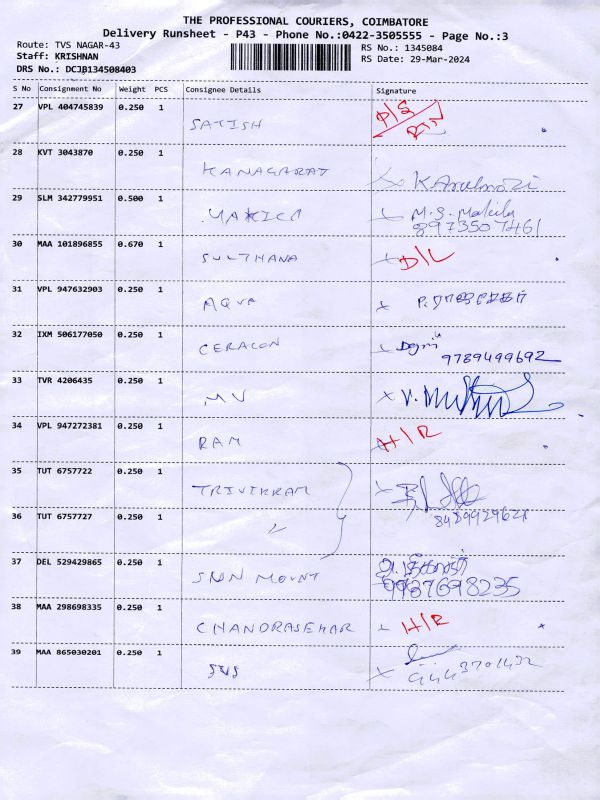 THE PROFESSIONAL COURIERS, COIMBATORE
Delivery Runsheet - P43 - Phone No.:0422-3505555 - Page No.:3
Route: TVS NAGAR-43 RS No.: 1345084
Staff: KRISHNAN RS Date: 29-Mar-2024
DRS No.: DCJB134508403
S No Consignment No Weight PCS Consignee Details Signature
27 VPL 404745839 0.250 1 SATISH
28 KVT 3043870 0.250 1 KANAGARAJ
29 SLM 342779951 0.500 1 M.S.
8973507461
30 MAA 101896855 0.670 1 SULTHANA D/L
31 VPL 947632903 0.250 1 AQUA
32 IXM 506177050 0.250 1 CERACON
9789499692
33 TVR 4206435 0.250 1 MV
34 VPL 947272381 0.250 1 RAM H/R
35 TUT 6757722 0.250 1 TRIVIKRAM
36 TUT 6757727 0.250 1
37 DEL 529429865 0.250 1 MOUNT
9987698235
38 MAA 298698335 0.250 1 CHANDRASEKAR H/R
39 MAA 865030201 0.250 1 SVS